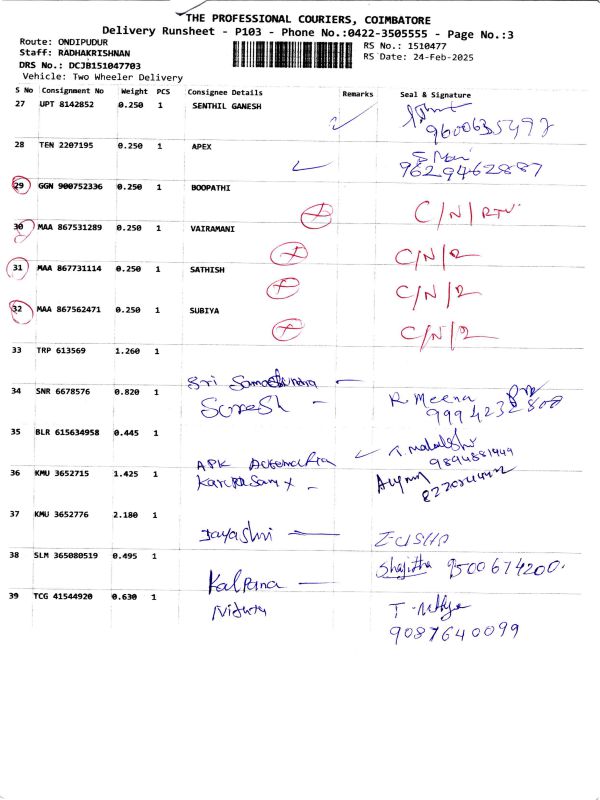 THE PROFESSIONAL COURIERS, COIMBATORE
Delivery Runsheet - P103 - Phone No.:0422-3505555 - Page No.:3
Route: ONDIPUDUR RS No.: 1510477
Staff: RADHAKRISHNAN RS Date: 24-Feb-2025
DRS No.: DCJB151047703
Vehicle: Two Wheeler Delivery
S No Consignment No Weight PCS Consignee Details Remarks Seal & Signature
27 UPT 8142852 0.250 1 SENTHIL GANESH
9600635492
28 TEN 2207195 0.250 1 APEX
S Mani
9629462887
29 GGN 900752336 0.250 1 BOOPATHI
C/N/RTN
30 MAA 867531289 0.250 1 VAIRAMANI
C/N/R
31 MAA 867731114 0.250 1 SATHISH
C/N/R
32 MAA 867562471 0.250 1 SUBIYA
C/N/R
33 TRP 613569 1.260 1
Sri
34 SNR 6678576 0.820 1 R. Meena
Suresh
35 BLR 615634958 0.445 1
APK
36 KMU 3652715 1.425 1
37 KMU 3652776 2.180 1
Jayashri
38 SLM 365080519 0.495 1 Shajitha 9500674200.
Kalpana
39 TCG 41544920 0.630 1
9087640099